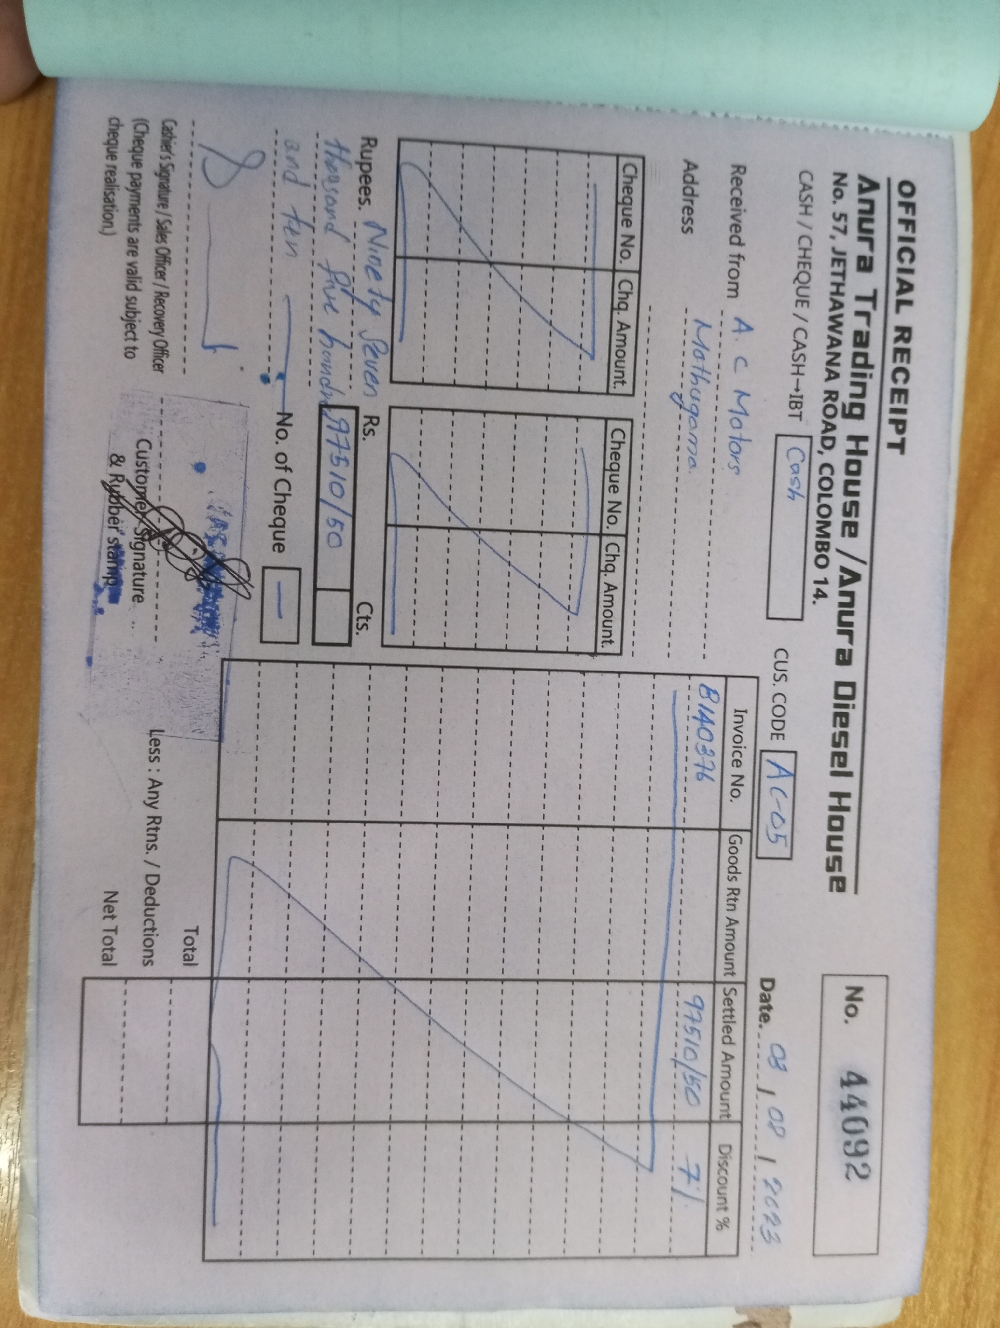 OFFICIAL RECEIPT
Anura Trading House / Anura Diesel House
No. 57, JETHAWANA ROAD, COLOMBO 14.
No. 44092
CASH / CHEQUE / CASH→IBT Cash CUS. CODE AC-05 Date. 03 / 08 / 2023
Received from A. C Motors
Address Mathugama.
Cheque No. Chq. Amount. Cheque No. Chq. Amount.
Invoice No. Goods Rtn Amount Settled Amount Discount %
B140276 97510/50 7%
Rupees. Ninety Seven Rs. Cts.
thousand five hundred 97510/50
and ten No. of Cheque —
Cashier's Signature / Sales Officer / Recovery Officer
(Cheque payments are valid subject to
cheque realisation)
Customer Signature
& Rubber stamp
Total
Less : Any Rtns. / Deductions
Net Total